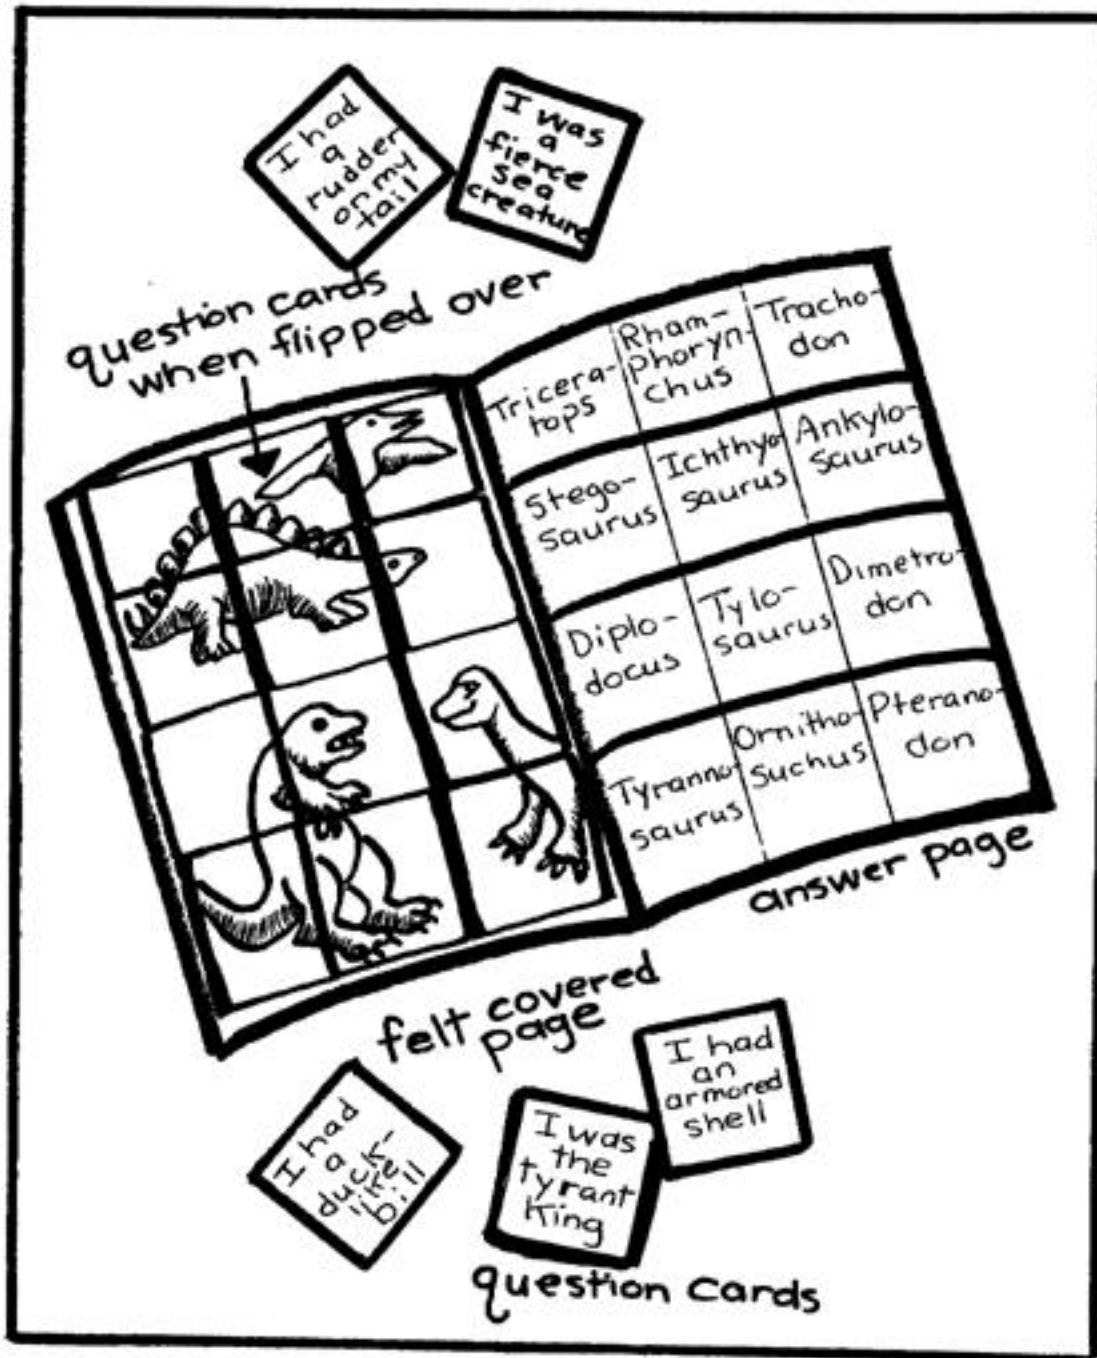 I had
a
rudder
on my
tail
I was
a
fierce
sea
creature
question cards
when flipped over
Tricera-
tops
Rham-
phoryn-
chus
Tracho-
don
Stego-
saurus
Ichthyo-
saurus
Ankylo-
saurus
Diplo-
docus
Tylo-
saurus
Dimetro-
don
Tyranno-
saurus
Ornitho-
suchus
Pterano-
don
answer page
felt covered
page
I had
a
duck-
like
bill
I was
the
tyrant
King
I had
an
armored
shell
question cards